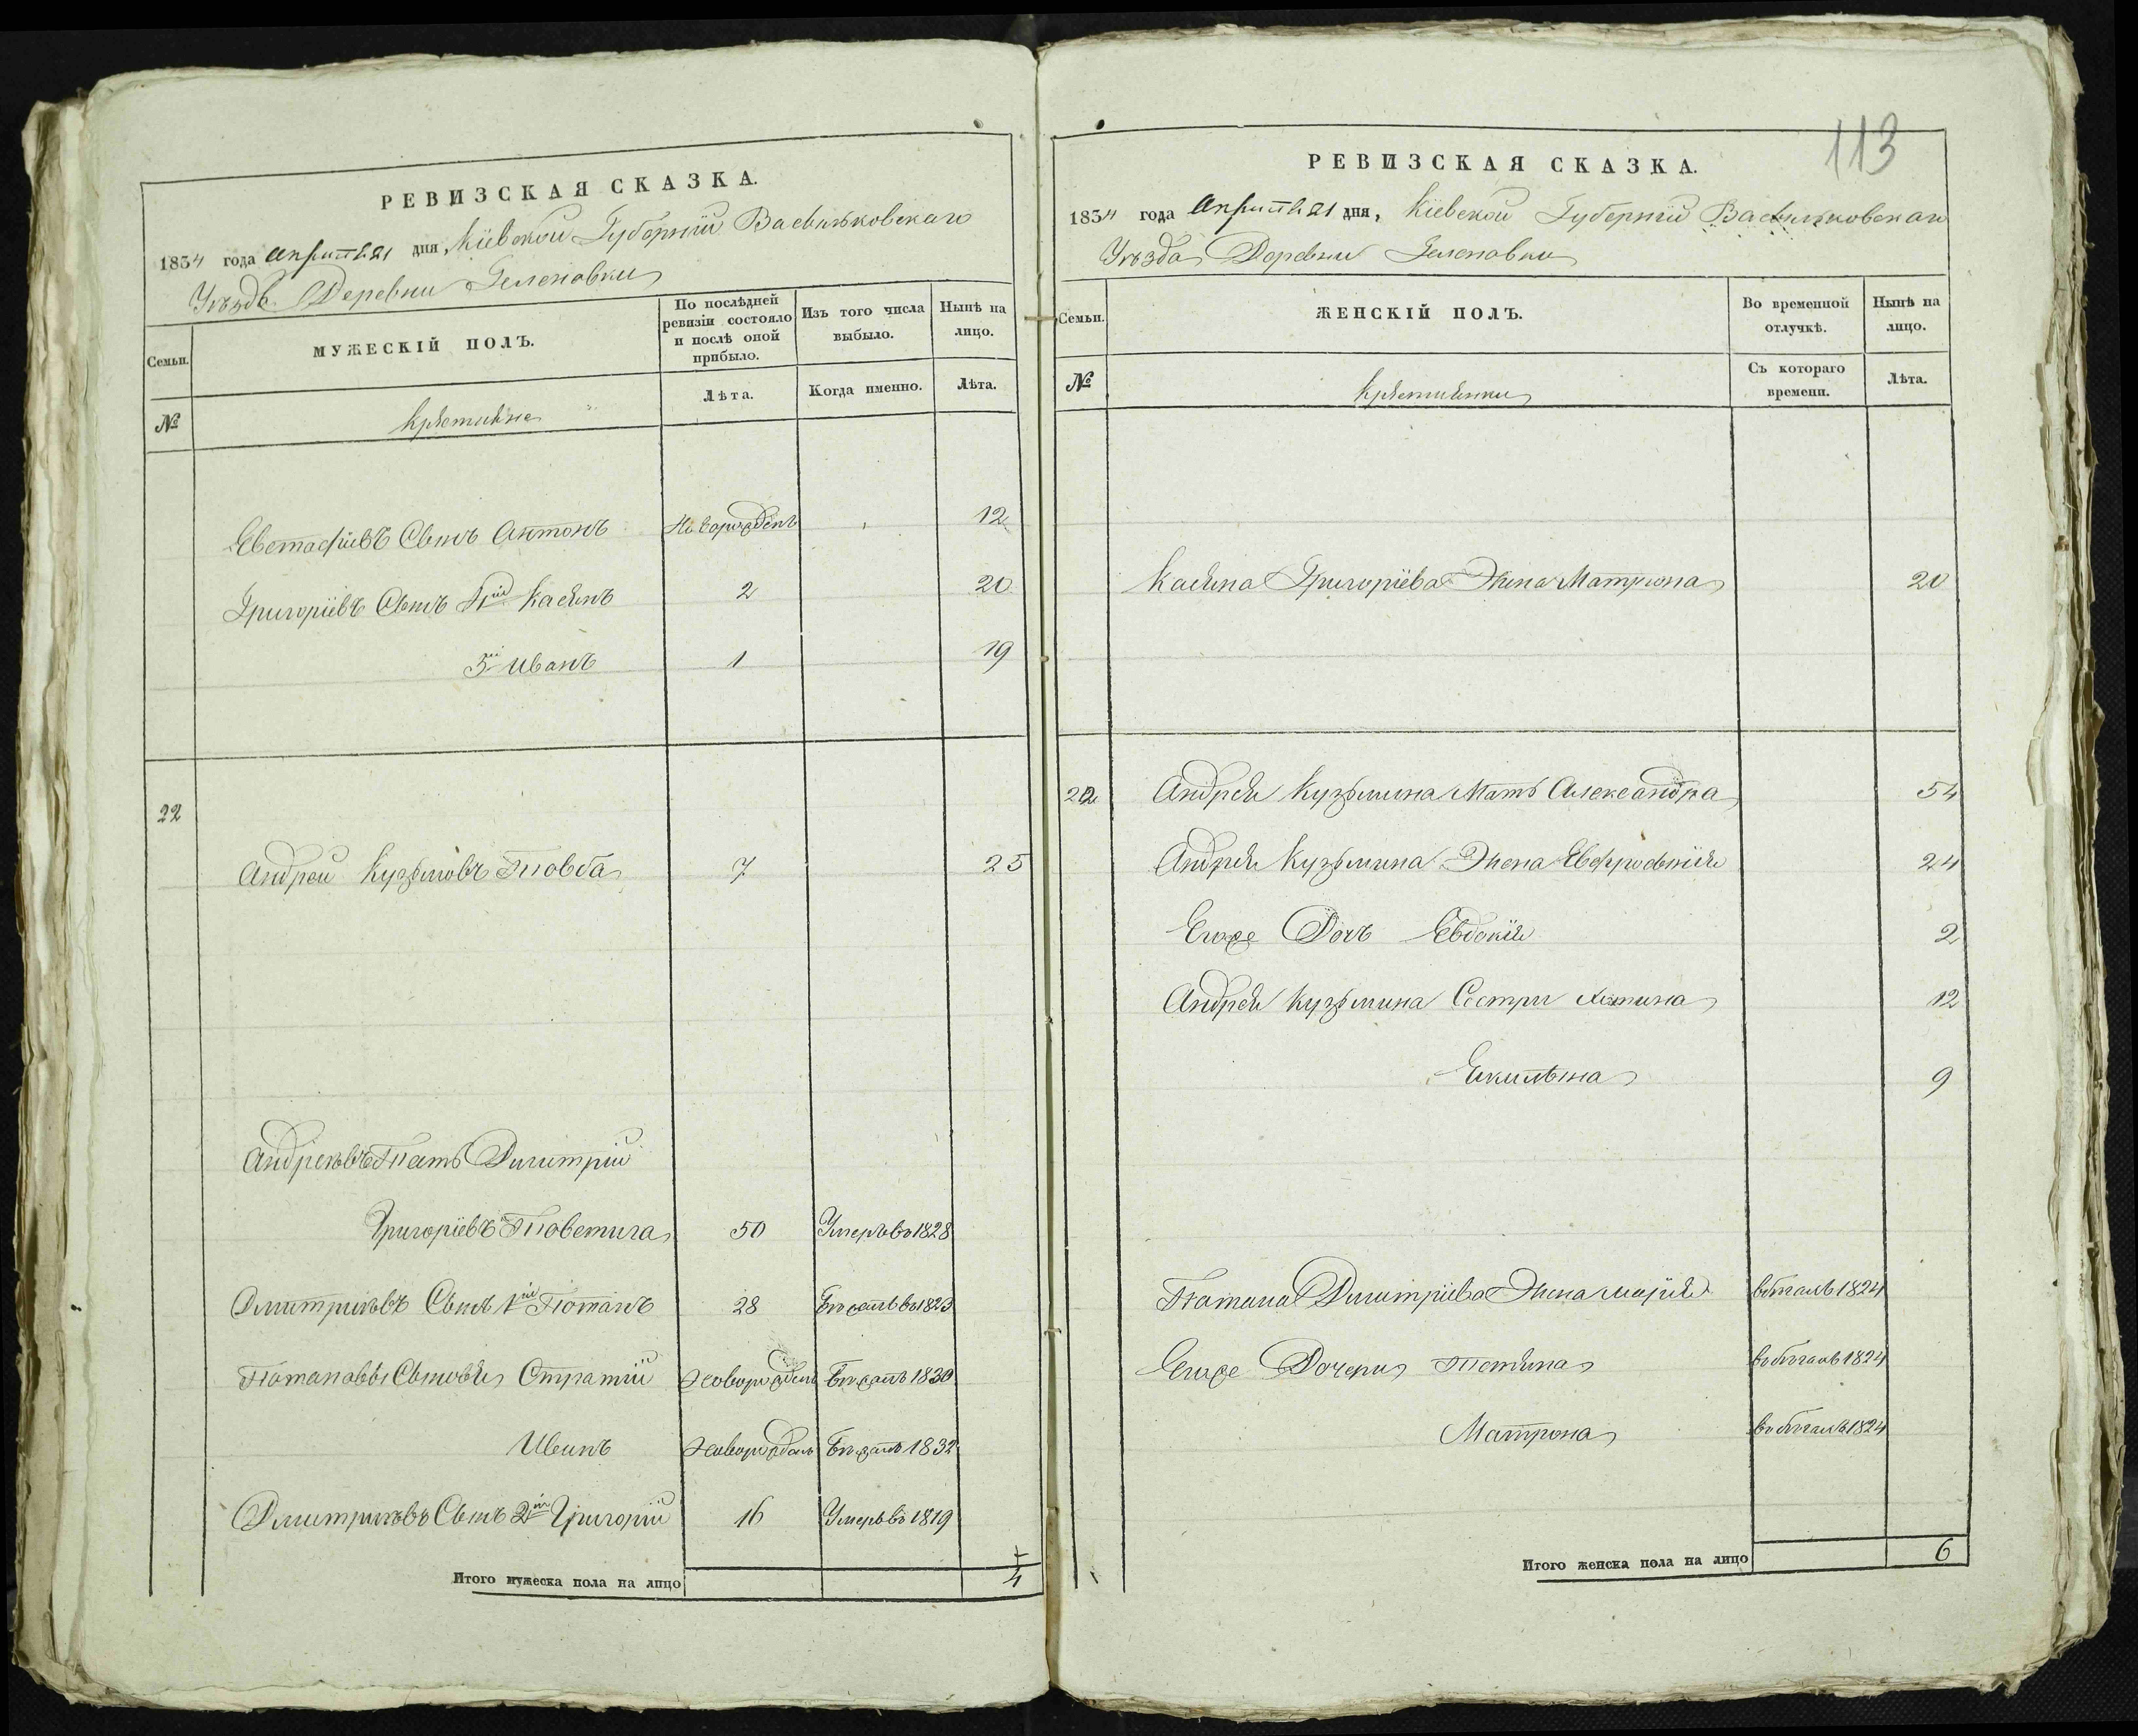 РЕВИЗСКАЯ СКАЗКА.
1834 года Апрѣля дня, Кіевской Губерніи Васильковскаго
Уѣзда Деревни Зеленовки
Семьи.
МУЖЕСКІЙ ПОЛЪ.
По послѣдней ревизіи состояло и послѣ оной прибыло.
Изъ того числа выбыло.
Нынѣ на лицо.
№
Крестьяне
Лѣта.
Когда именно.
Лѣта.
Евстафіевъ Сынъ Антонъ Новорожденъ 12
Григоріевъ Сынъ Касянъ 2 20
5й Иванъ 1 19
22
Андрей Кузьмовъ Товба 7 25
Андреевъ Дмитрій
Григоріевъ 50 Умеръ въ 1828
Дмитріевъ Сынъ 1й Потапъ 28 Бѣжалъ въ 1823
Потаповы Сыновья Стратій Новорожденъ Бѣжалъ 1830
Иванъ Новорожденъ Бѣжалъ 1832
Дмитріевъ Сынъ 2й Григорій 16 Умеръ въ 1819
Итого мужеска пола на лицо 4
113
РЕВИЗСКАЯ СКАЗКА.
1834 года Апрѣля дня, Кіевской Губерніи Васильковскаго
Уѣзда Деревни Зеленовки
Семьи.
ЖЕНСКІЙ ПОЛЪ.
Во временной отлучкѣ.
Нынѣ на лицо.
№
Крестьянки
Съ котораго времени.
Лѣта.
Касяна Григоріева Жена Матрона 20
22 Андрея Кузьмина Мать Александра 54
Андрея Кузьмина Жена Евфросинія 24
Егоже Дочь Евдокія 2
Андрея Кузьмина Сестри 12
Екилѣна 9
Потапа Дмитріева Жена Марія 1824
Егоже Дочери Тетяна 1824
Матрона 1824
Итого женска пола на лицо 6